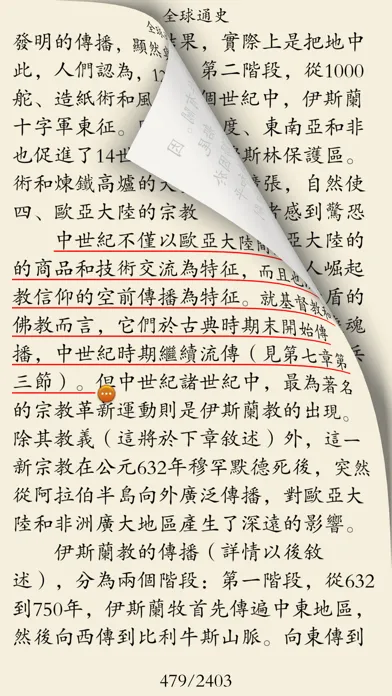 全球通史
發明的傳播，顯然 果，實際上是把地中
此，人們認為，12 第二階段，從1000
舵、造紙術和風 個世紀中，伊斯蘭
十字軍東征。 度、東南亞和非
也促進了14世 斯林保護區。
術和煉鐵高爐的 張，自然使
四、歐亞大陸的宗教 者感到驚恐
中世紀不僅以歐亞大陸間 亞大陸的
的商品和技術交流為特征，而且也 人崛起
教信仰的空前傳播為特征。就基督教和 盾的
佛教而言，它們於古典時期末開始傳 魂
播，中世紀時期繼續流傳（見第七章第
三節）。但中世紀諸世紀中，最為著名
的宗教革新運動則是伊斯蘭教的出現。
除其教義（這將於下章敘述）外，這一
新宗教在公元632年穆罕默德死後，突然
從阿拉伯半島向外廣泛傳播，對歐亞大
陸和非洲廣大地區產生了深遠的影響。
伊斯蘭教的傳播（詳情以後敘
述），分為兩個階段：第一階段，從632
到750年，伊斯蘭牧首先傳遍中東地區，
然後向西傳到比利牛斯山脈。向東傳到
479/2403